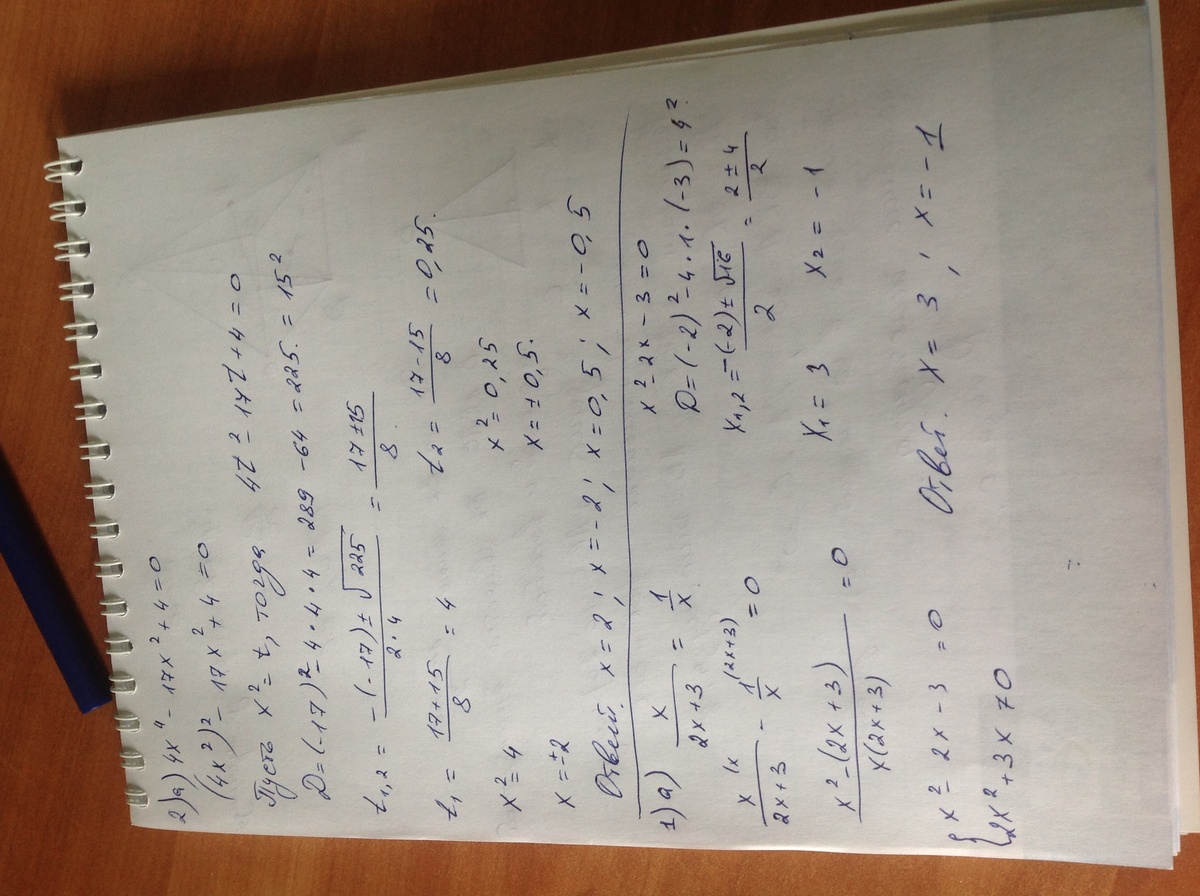 2) а) 4x⁴ - 17x² + 4 = 0
(4x²)² - 17x² + 4 = 0
Пусть x² = t, тогда 4t² - 17t + 4 = 0
D = (-17)² - 4·4·4 = 289 - 64 = 225. = 15²
t₁,₂ = (-(-17) ± √225)/(2·4) = (17 ± 15)/8.
t₁ = (17 + 15)/8 = 4 t₂ = (17 - 15)/8 = 0,25.
x² = 4 x² = 0,25
x = ±2 x = ± 0,5.
Ответ. x = 2; x = -2; x = 0,5; x = -0,5
1) а) x/(2x+3) = 1/x
x/(2x+3) (x - 1/x (2x+3) = 0
(x² - (2x+3))/(x(2x+3)) = 0
{ x² - 2x - 3 = 0
2x² + 3x ≠ 0
x² - 2x - 3 = 0
D = (-2)² - 4·1·(-3) = 4².
x₁,₂ = (-(-2) ± √16)/2 = (2 ± 4)/2
x₁ = 3 x₂ = -1
Ответ. x = 3; x = -1